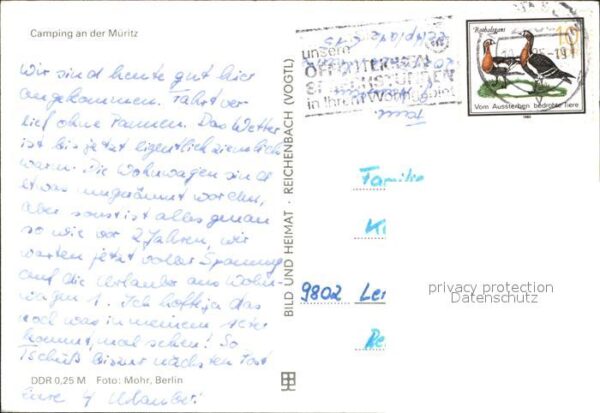 Camping an der Müritz
Wir sind heute gut hier
angekommen. Fahrt ver
lief ohne Pannen. Das Wetter
ist bis jetzt eigentlich ziemlich
warm. Die Wohnwagen sind
etwas umgeräumt worden,
aber sonst ist alles genau
so wie vor 2 Jahren, wir
warten jetzt voller Spannung
auf die Urlauber aus Wohn-
wagen 1. Ich hoffe ja das
noch was in meinem
kommt, mal sehen! So
Tschüß bis zur nächsten Post
Eure 4 Urlauber!
DDR 0,25 M Foto: Mohr, Berlin
BILD UND HEIMAT · REICHENBACH (VOGTL)
unsern
ÖFFENTLICHEN
SPRECHSTUNDEN
in Ihrem Wohngebiet
Rothalsgans
10
Vom Aussterben bedrohte Tiere
Familie
K
9802 Len
Re
privacy protection
Datenschutz